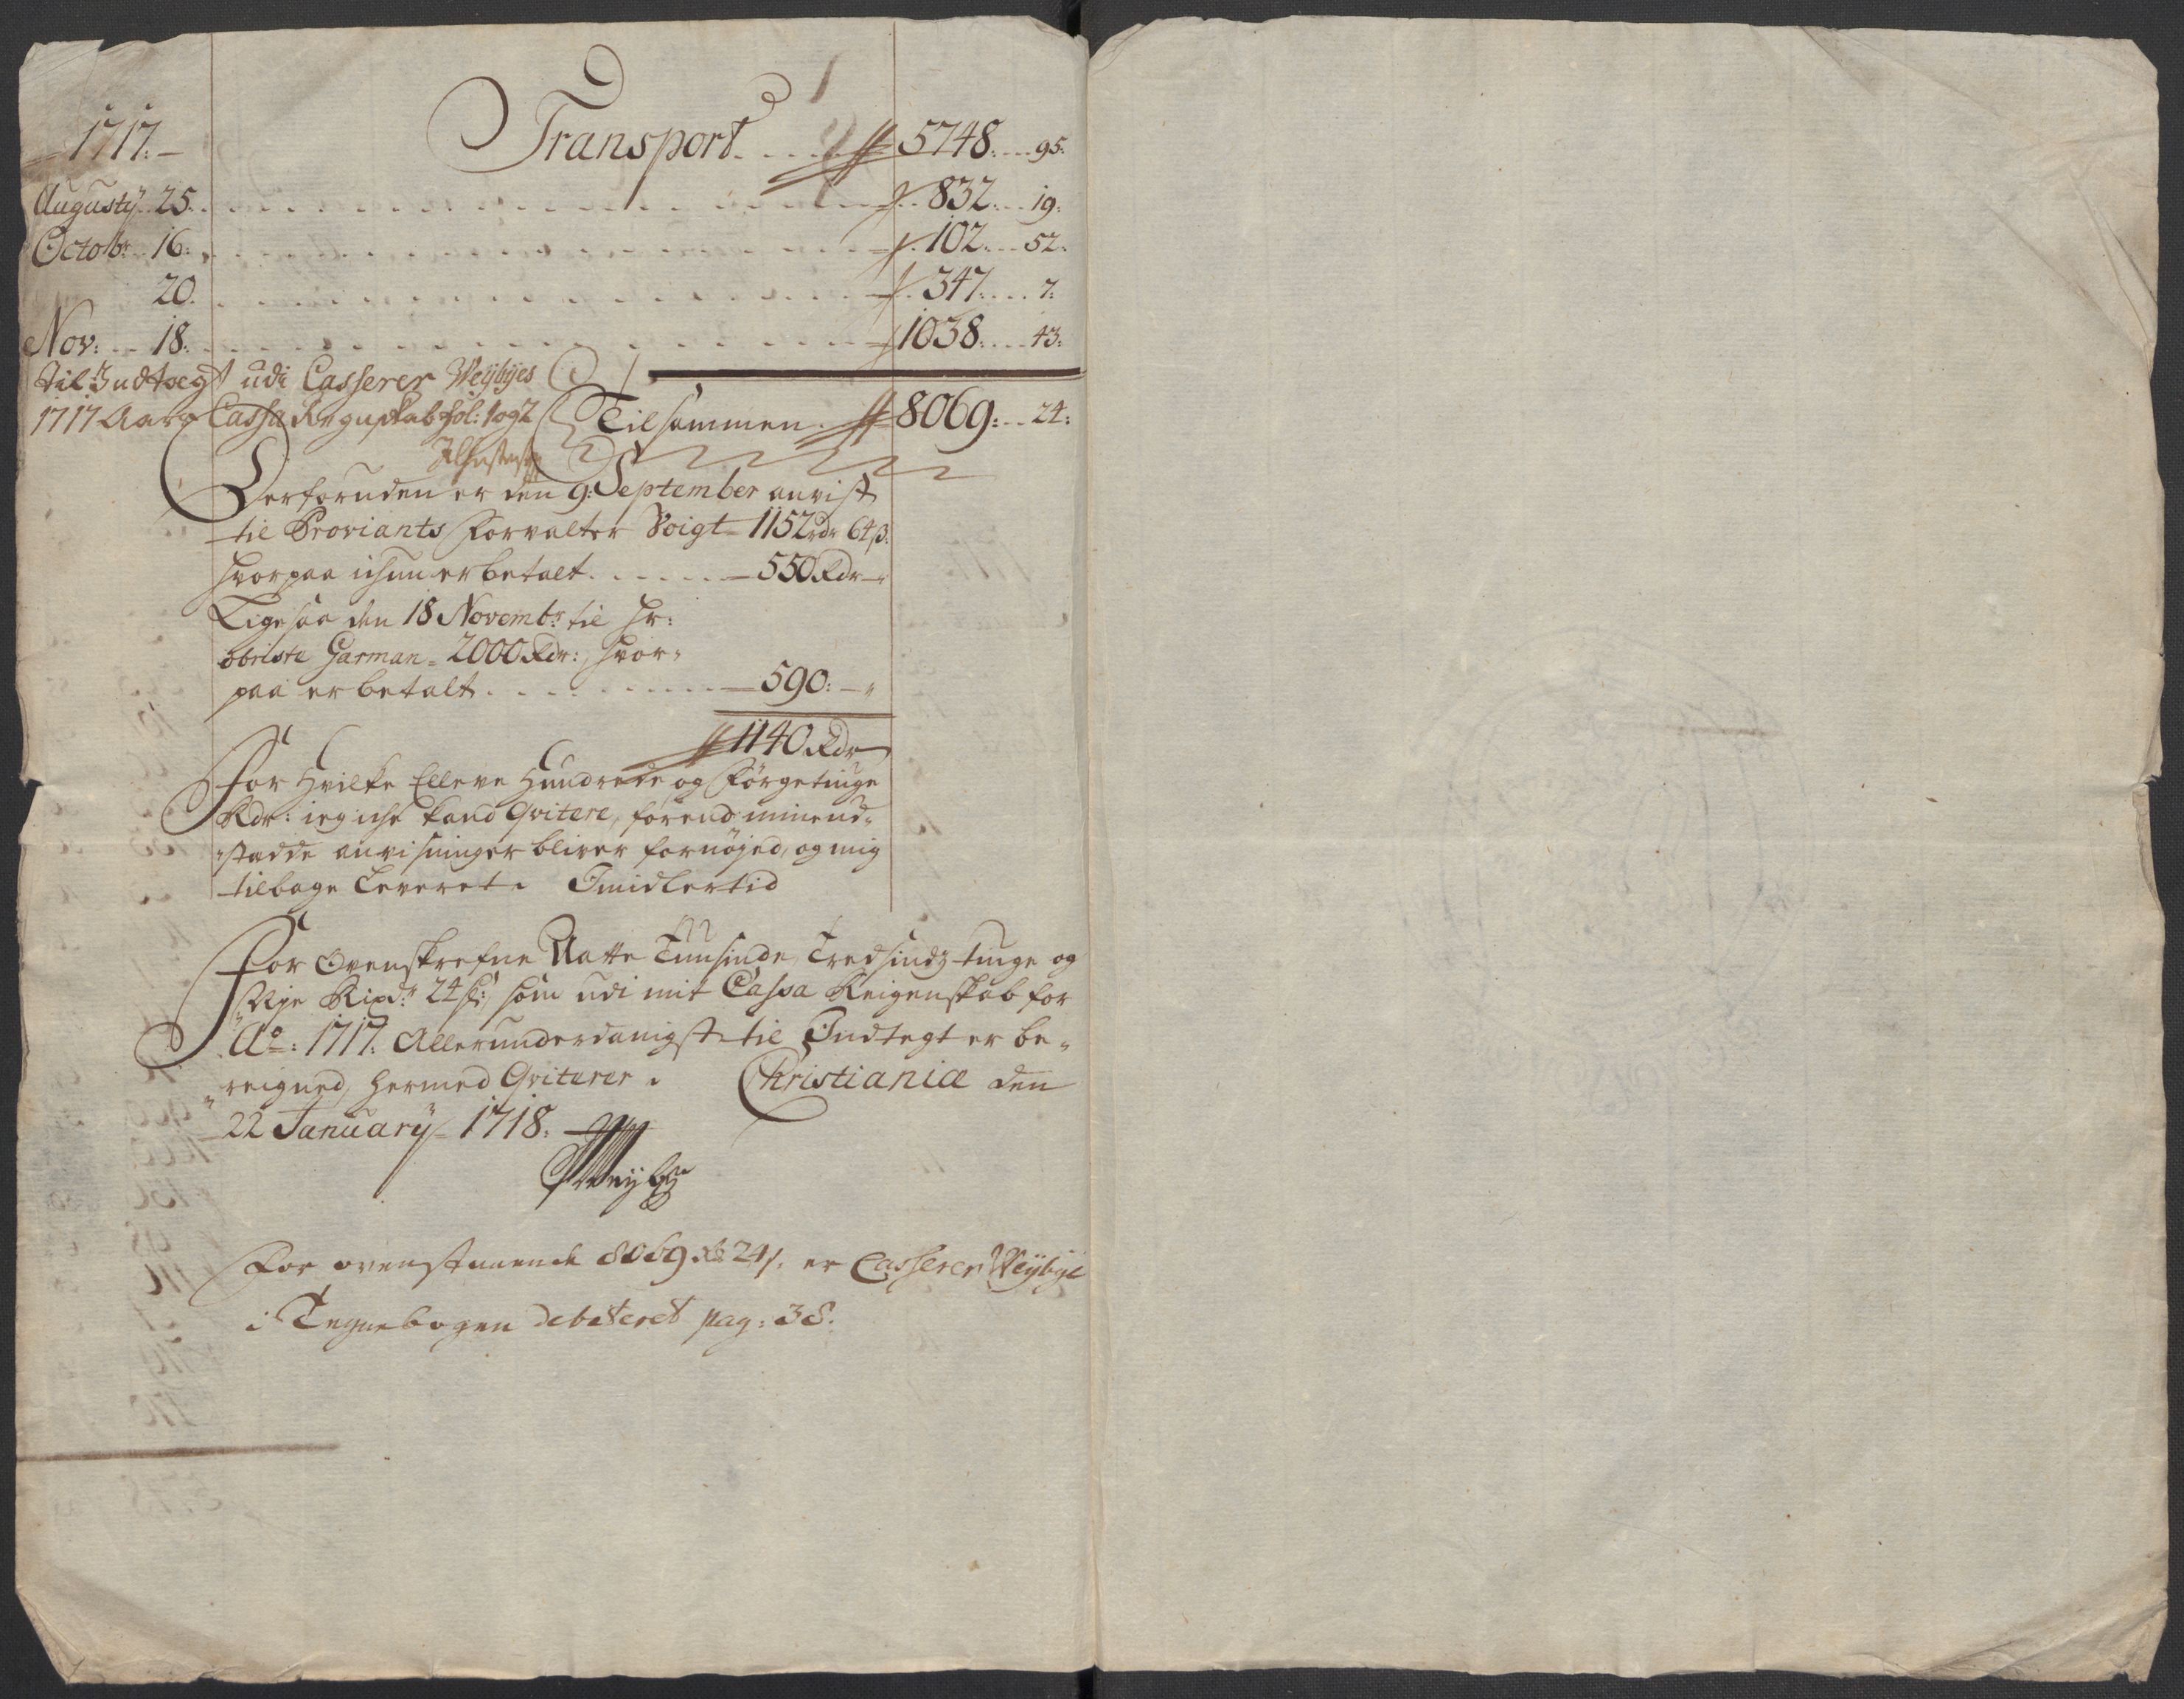 1717. Transport. . . . 5748: . . 95:
Augustÿ 25. . . . 832. . . 19:
Octobr 16: . . . 102. . . 52:
20. . . . 347. . . 7:
Nov: . . 18. . . . 1038: . . 43:
til Indtægt udi Casserer Weÿbÿes
1717 Aars Cassa Regnskab fol: 1 og 2
Tilsammen. 8069: . . 24:
Derforuden er den 9: September anvist
til Proviants Forvalter Voigt - 1152 rdr 64 ß:
hvorpaa ichun er betalt. . . . . . 550 Rdr -
Ligesaa den 18 Novembr: til Hr:
Obriste Garman = 2000 Rdr:, hvor=
paa er betalt. . . . . . . . . 590: -
1140 Rdr
For Hvilke Elleve Hundrede og Førgetiuge
Rdr: ieg iche kand Qvitere, forend min ud=
stædde anvisninger bliver fornøjed, og mig
tilbage Leveret. Imidlertid
For Ovenskrefne Aatte Tuusinde, Tredsindz tiuge og
Nje Rixdr 24 ß:, som udi mit Cassa Reigenskab for
Ao: 1717. Allerunderdanigst til Indtegt er be=
reigned, hermed Qviterer. Christiania den
22 January 1718.
Weÿbÿe
For ovenstaaende 8069 Rd 24 ß. er Casserer Weÿbÿe
i Tegnebogen debiteret pag: 38.